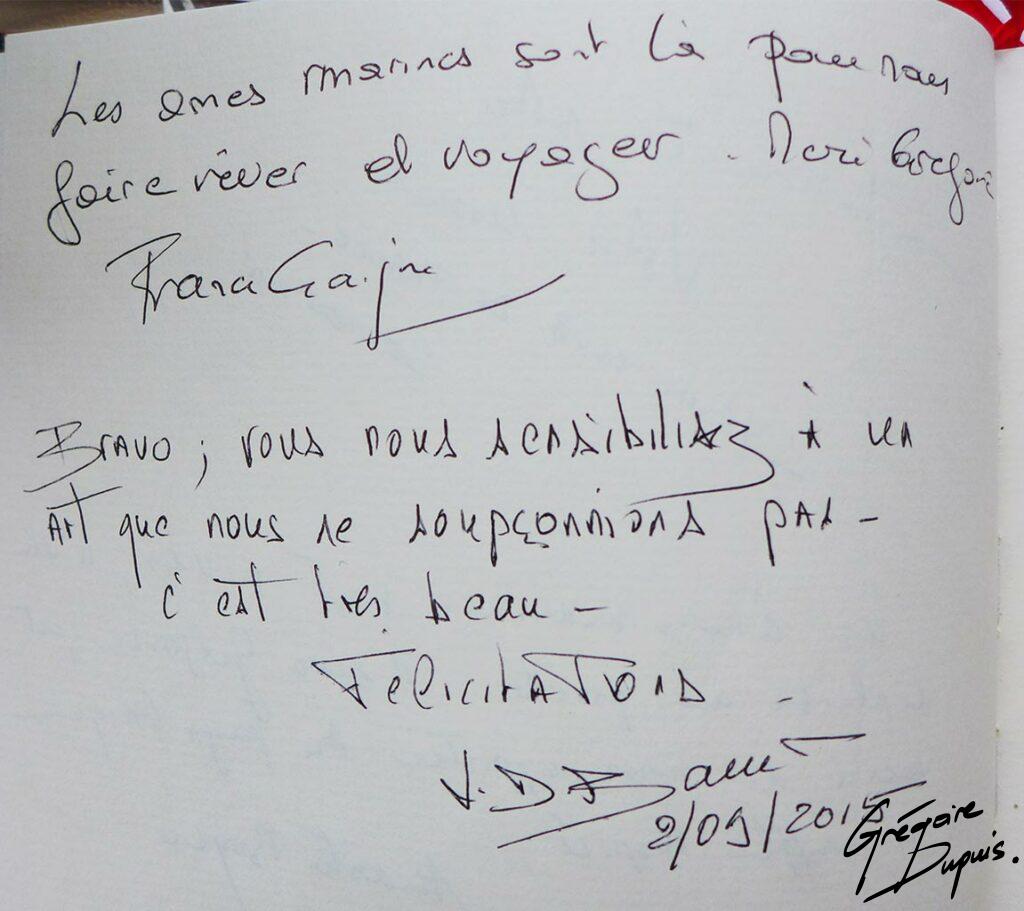 Les ames marines sont là pour nous
faire rêver et voyager. Merci Grégoire
Bravo ; vous nous sensibilisez à un
Art que nous ne soupçonnions pas -
c'est très beau -
Félicitations -
J. D
2/09/2015
Grégoire
Dupuis.